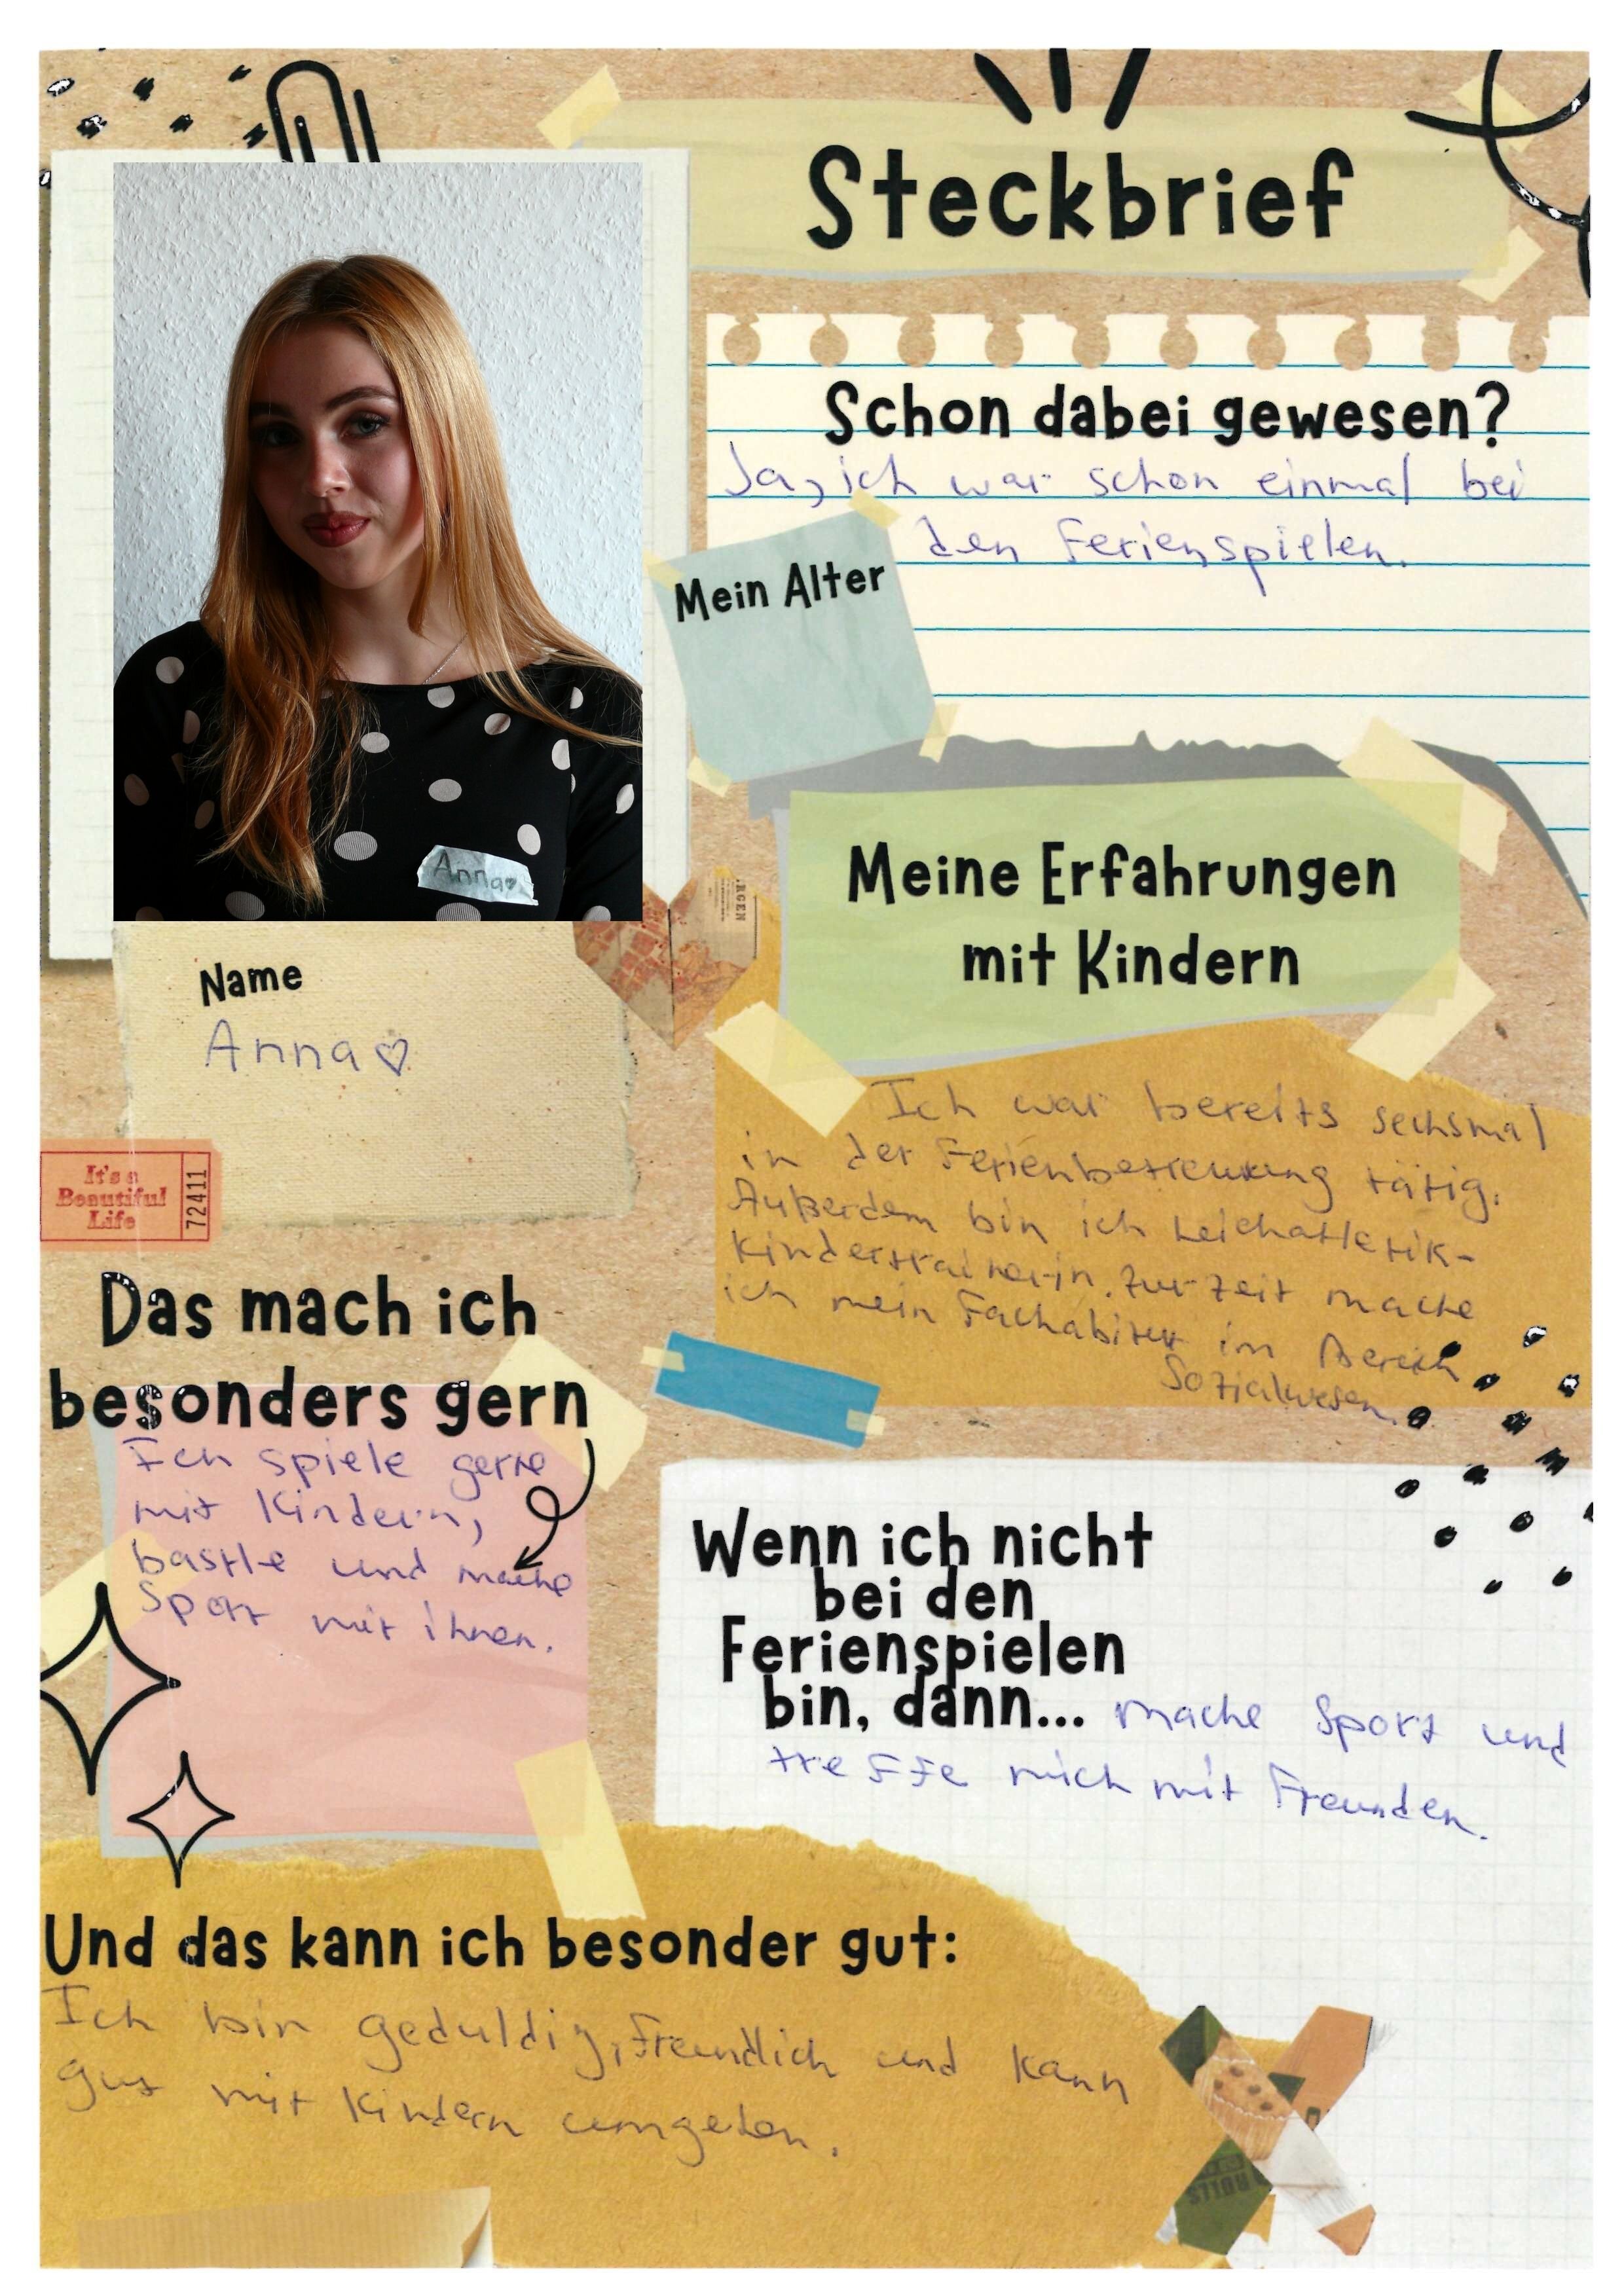 Steckbrief
Schon dabei gewesen?
Ja, ich war schon einmal bei
den Ferienspielen.
Mein Alter
Anna♥
Name
Anna♡
Meine Erfahrungen
mit Kindern
Ich war bereits sechsmal
in der Ferienbetreuung tätig.
Außerdem bin ich Leichatletik-
Kindertrainerin. Zur Zeit mache
ich mein Fachabitur im Bereich
Sozialwesen.
RGEN
It's a
Beautiful
Life
72411
Das mach ich
besonders gern
Ich spiele gerne
mit Kindern,
bastle und mache
Sport mit ihnen.
Wenn ich nicht
bei den
Ferienspielen
bin, dann... mache Sport und
treffe mich mit Freunden.
Und das kann ich besonder gut:
Ich bin geduldig, freundlich und kann
gut mit Kindern umgehen.
ROLLS